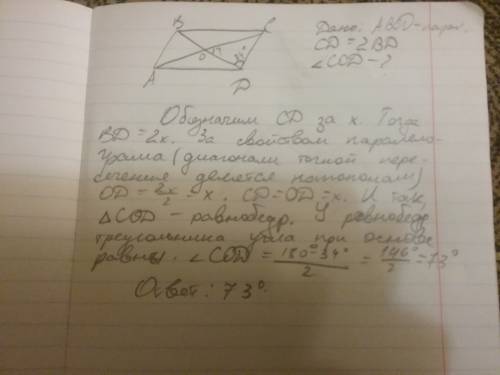 B C
O
A
D
34°
Дано: ABCD-парал.
CD=2BD
∠COD-?
Обозначим CD за x. Тогда
BD=2x. За свойством паралело-
грама (диагонали точкой пере-
сечения делятся пополам)
OD = 2x/2 = x. CD=OD=x. И так,
△COD - равнобедр. У равнобедр
треугольника угла при основе
равны. ∠COD = 180°-34°/2 = 146°/2 = 73°
Ответ: 73°.